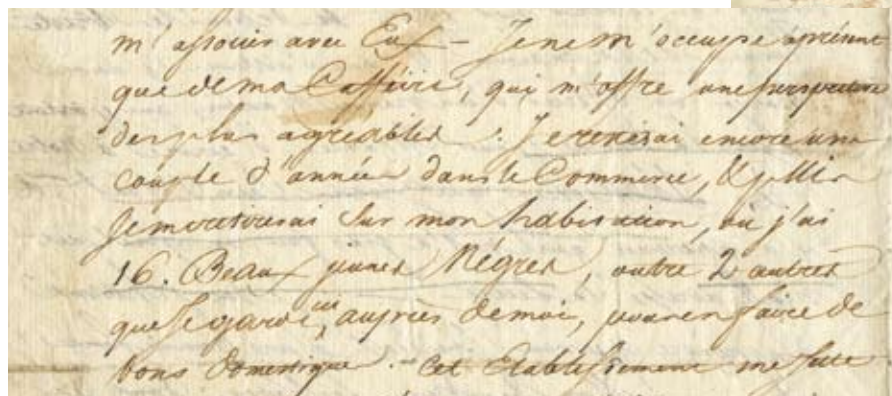 m'associer avec Eux — Je ne m'occupe àprésent
que de ma Caffèirie, qui m'offre une perspective
des plus agréables. Je resterai encore une
couple d'années dans le Commerce, & puis
Je me retirerai sur mon habitation, où j'ai
16. Beaux jeunes Négres, outre 2 autres
que Je garde ici, auprès de moi, pour en faire de
bons domestiques. — Cet Etablissement me